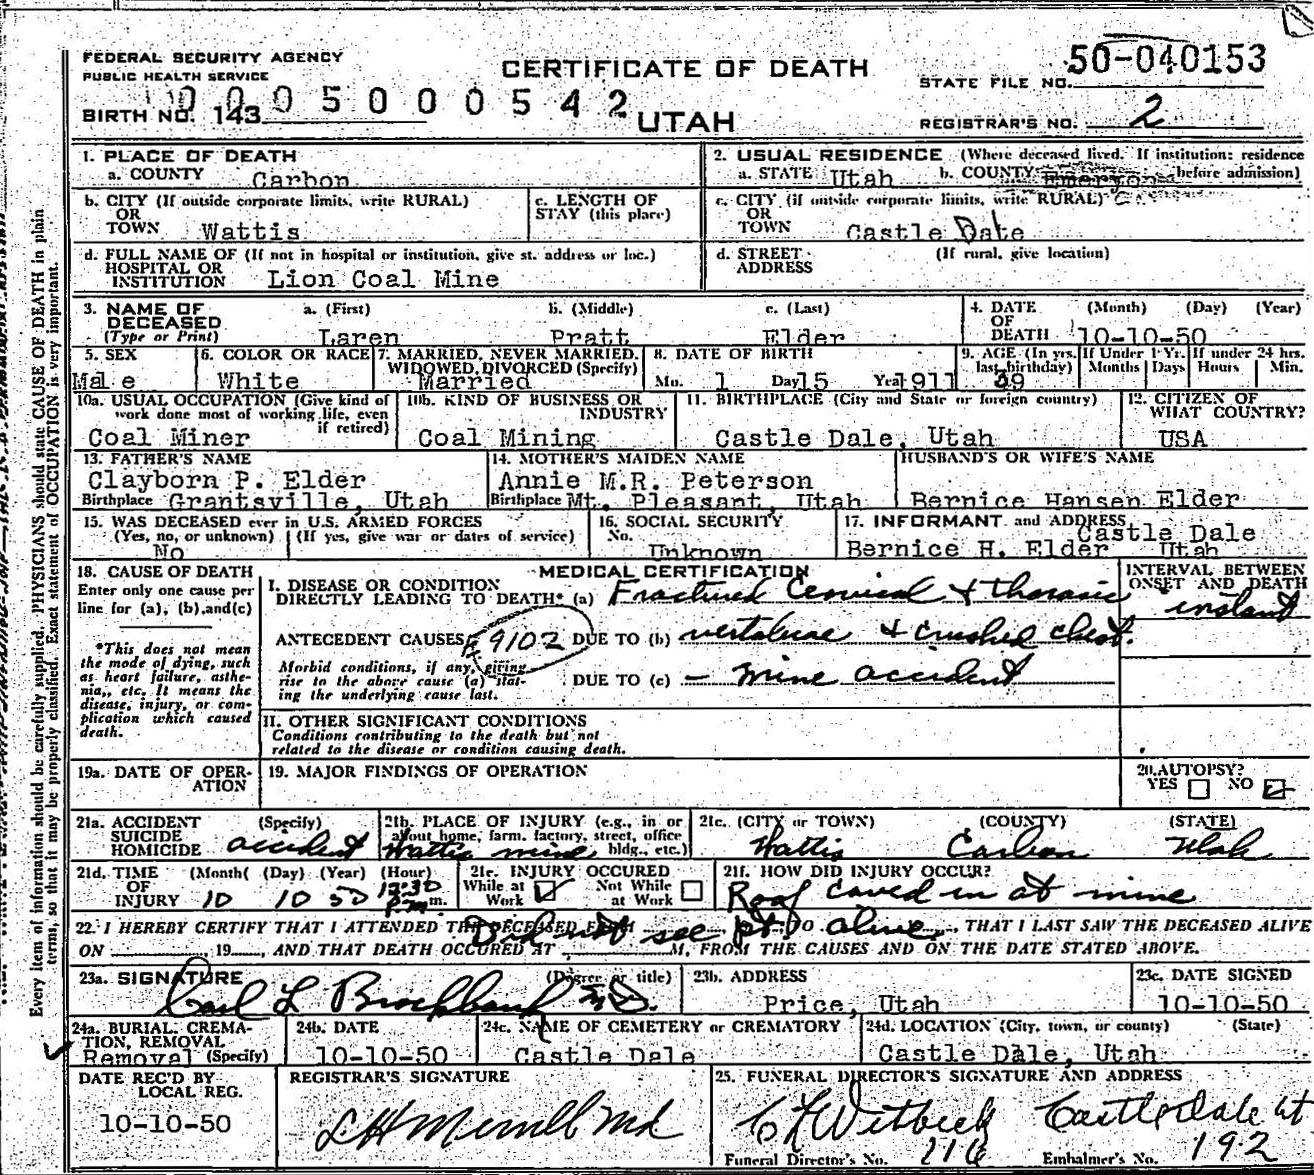 FEDERAL SECURITY AGENCY
PUBLIC HEALTH SERVICE
CERTIFICATE OF DEATH
STATE FILE NO. 50-040153
BIRTH NO. 143 0005000542
UTAH
REGISTRAR'S NO. 2
1. PLACE OF DEATH
a. COUNTY Carbon
2. USUAL RESIDENCE (Where deceased lived. If institution: residence before admission)
a. STATE Utah b. COUNTY Emery
b. CITY (If outside corporate limits, write RURAL) OR TOWN Wattis
c. LENGTH OF STAY (this place)
c. CITY (if outside corporate limits, write RURAL) OR TOWN Castle Dale
d. FULL NAME OF (If not in hospital or institution, give st. address or loc.) HOSPITAL OR INSTITUTION Lion Coal Mine
d. STREET ADDRESS (If rural, give location)
3. NAME OF DECEASED (Type or Print) a. (First) Laren b. (Middle) Pratt c. (Last) Elder
4. DATE OF DEATH (Month) (Day) (Year) 10-10-50
5. SEX Male
6. COLOR OR RACE White
7. MARRIED, NEVER MARRIED, WIDOWED, DIVORCED (Specify) Married
8. DATE OF BIRTH Mo. 1 Day 15 Yea 1911
9. AGE (In yrs. last birthday) 39
If Under 1 Yr. Months Days
If under 24 hrs. Hours Min.
10a. USUAL OCCUPATION (Give kind of work done most of working life, even if retired) Coal Miner
10b. KIND OF BUSINESS OR INDUSTRY Coal Mining
11. BIRTHPLACE (City and State or foreign country) Castle Dale, Utah
12. CITIZEN OF WHAT COUNTRY? USA
13. FATHER'S NAME Clayborn P. Elder
Birthplace Grantsville, Utah
14. MOTHER'S MAIDEN NAME Annie M.R. Peterson
Birthplace Mt. Pleasant, Utah
HUSBAND'S OR WIFE'S NAME Bernice Hansen Elder
15. WAS DECEASED ever in U.S. ARMED FORCES (Yes, no, or unknown) (If yes, give war or dates of service) No
16. SOCIAL SECURITY No. Unknown
17. INFORMANT and ADDRESS Bernice H. Elder Castle Dale Utah
18. CAUSE OF DEATH
Enter only one cause per line for (a), (b), and (c)
*This does not mean the mode of dying, such as heart failure, asthenia, etc. It means the disease, injury, or complication which caused death.
MEDICAL CERTIFICATION
INTERVAL BETWEEN ONSET AND DEATH
I. DISEASE OR CONDITION DIRECTLY LEADING TO DEATH* (a) Fractured Cervical & thoracic
instant
ANTECEDENT CAUSES E 9102 DUE TO (b) vertabrae & crushed chest.
Morbid conditions, if any, giving rise to the above cause (a) stating the underlying cause last.
DUE TO (c) - mine accident
II. OTHER SIGNIFICANT CONDITIONS
Conditions contributing to the death but not related to the disease or condition causing death.
19a. DATE OF OPERATION
19. MAJOR FINDINGS OF OPERATION
20. AUTOPSY? YES NO
21a. ACCIDENT SUICIDE HOMICIDE (Specify) accident
21b. PLACE OF INJURY (e.g., in or about home, farm, factory, street, office bldg., etc.) Wattis mine
21c. (CITY or TOWN) (COUNTY) (STATE) Wattis Carbon Utah
21d. TIME OF INJURY (Month) (Day) (Year) (Hour) 10 10 50 12:30 P.m. m.
21e. INJURY OCCURED While at Work Not While at Work
21f. HOW DID INJURY OCCUR? Roof caved in at mine
22. I HEREBY CERTIFY THAT I ATTENDED THE DECEASED FROM Did not see pt. alive TO, THAT I LAST SAW THE DECEASED ALIVE
ON 19 , AND THAT DEATH OCCURED AT , M, FROM THE CAUSES AND ON THE DATE STATED ABOVE.
23a. SIGNATURE (Degree or title) Carl L Brockbank MD.
23b. ADDRESS Price, Utah
23c. DATE SIGNED 10-10-50
24a. BURIAL, CREMATION, REMOVAL (Specify) Removal
24b. DATE 10-10-50
24c. NAME OF CEMETERY or CREMATORY Castle Dale
24d. LOCATION (City, town, or county) (State) Castle Dale, Utah
DATE REC'D BY LOCAL REG. 10-10-50
REGISTRAR'S SIGNATURE LH Merrill Md
25. FUNERAL DIRECTOR'S SIGNATURE AND ADDRESS C L Witbeck Castle Dale Ut
Funeral Director's No. 216 Embalmer's No. 192
Every item of information should be carefully supplied. PHYSICIANS should state CAUSE OF DEATH in plain
terms, so that it may be properly classified. Exact statement of OCCUPATION is very important.